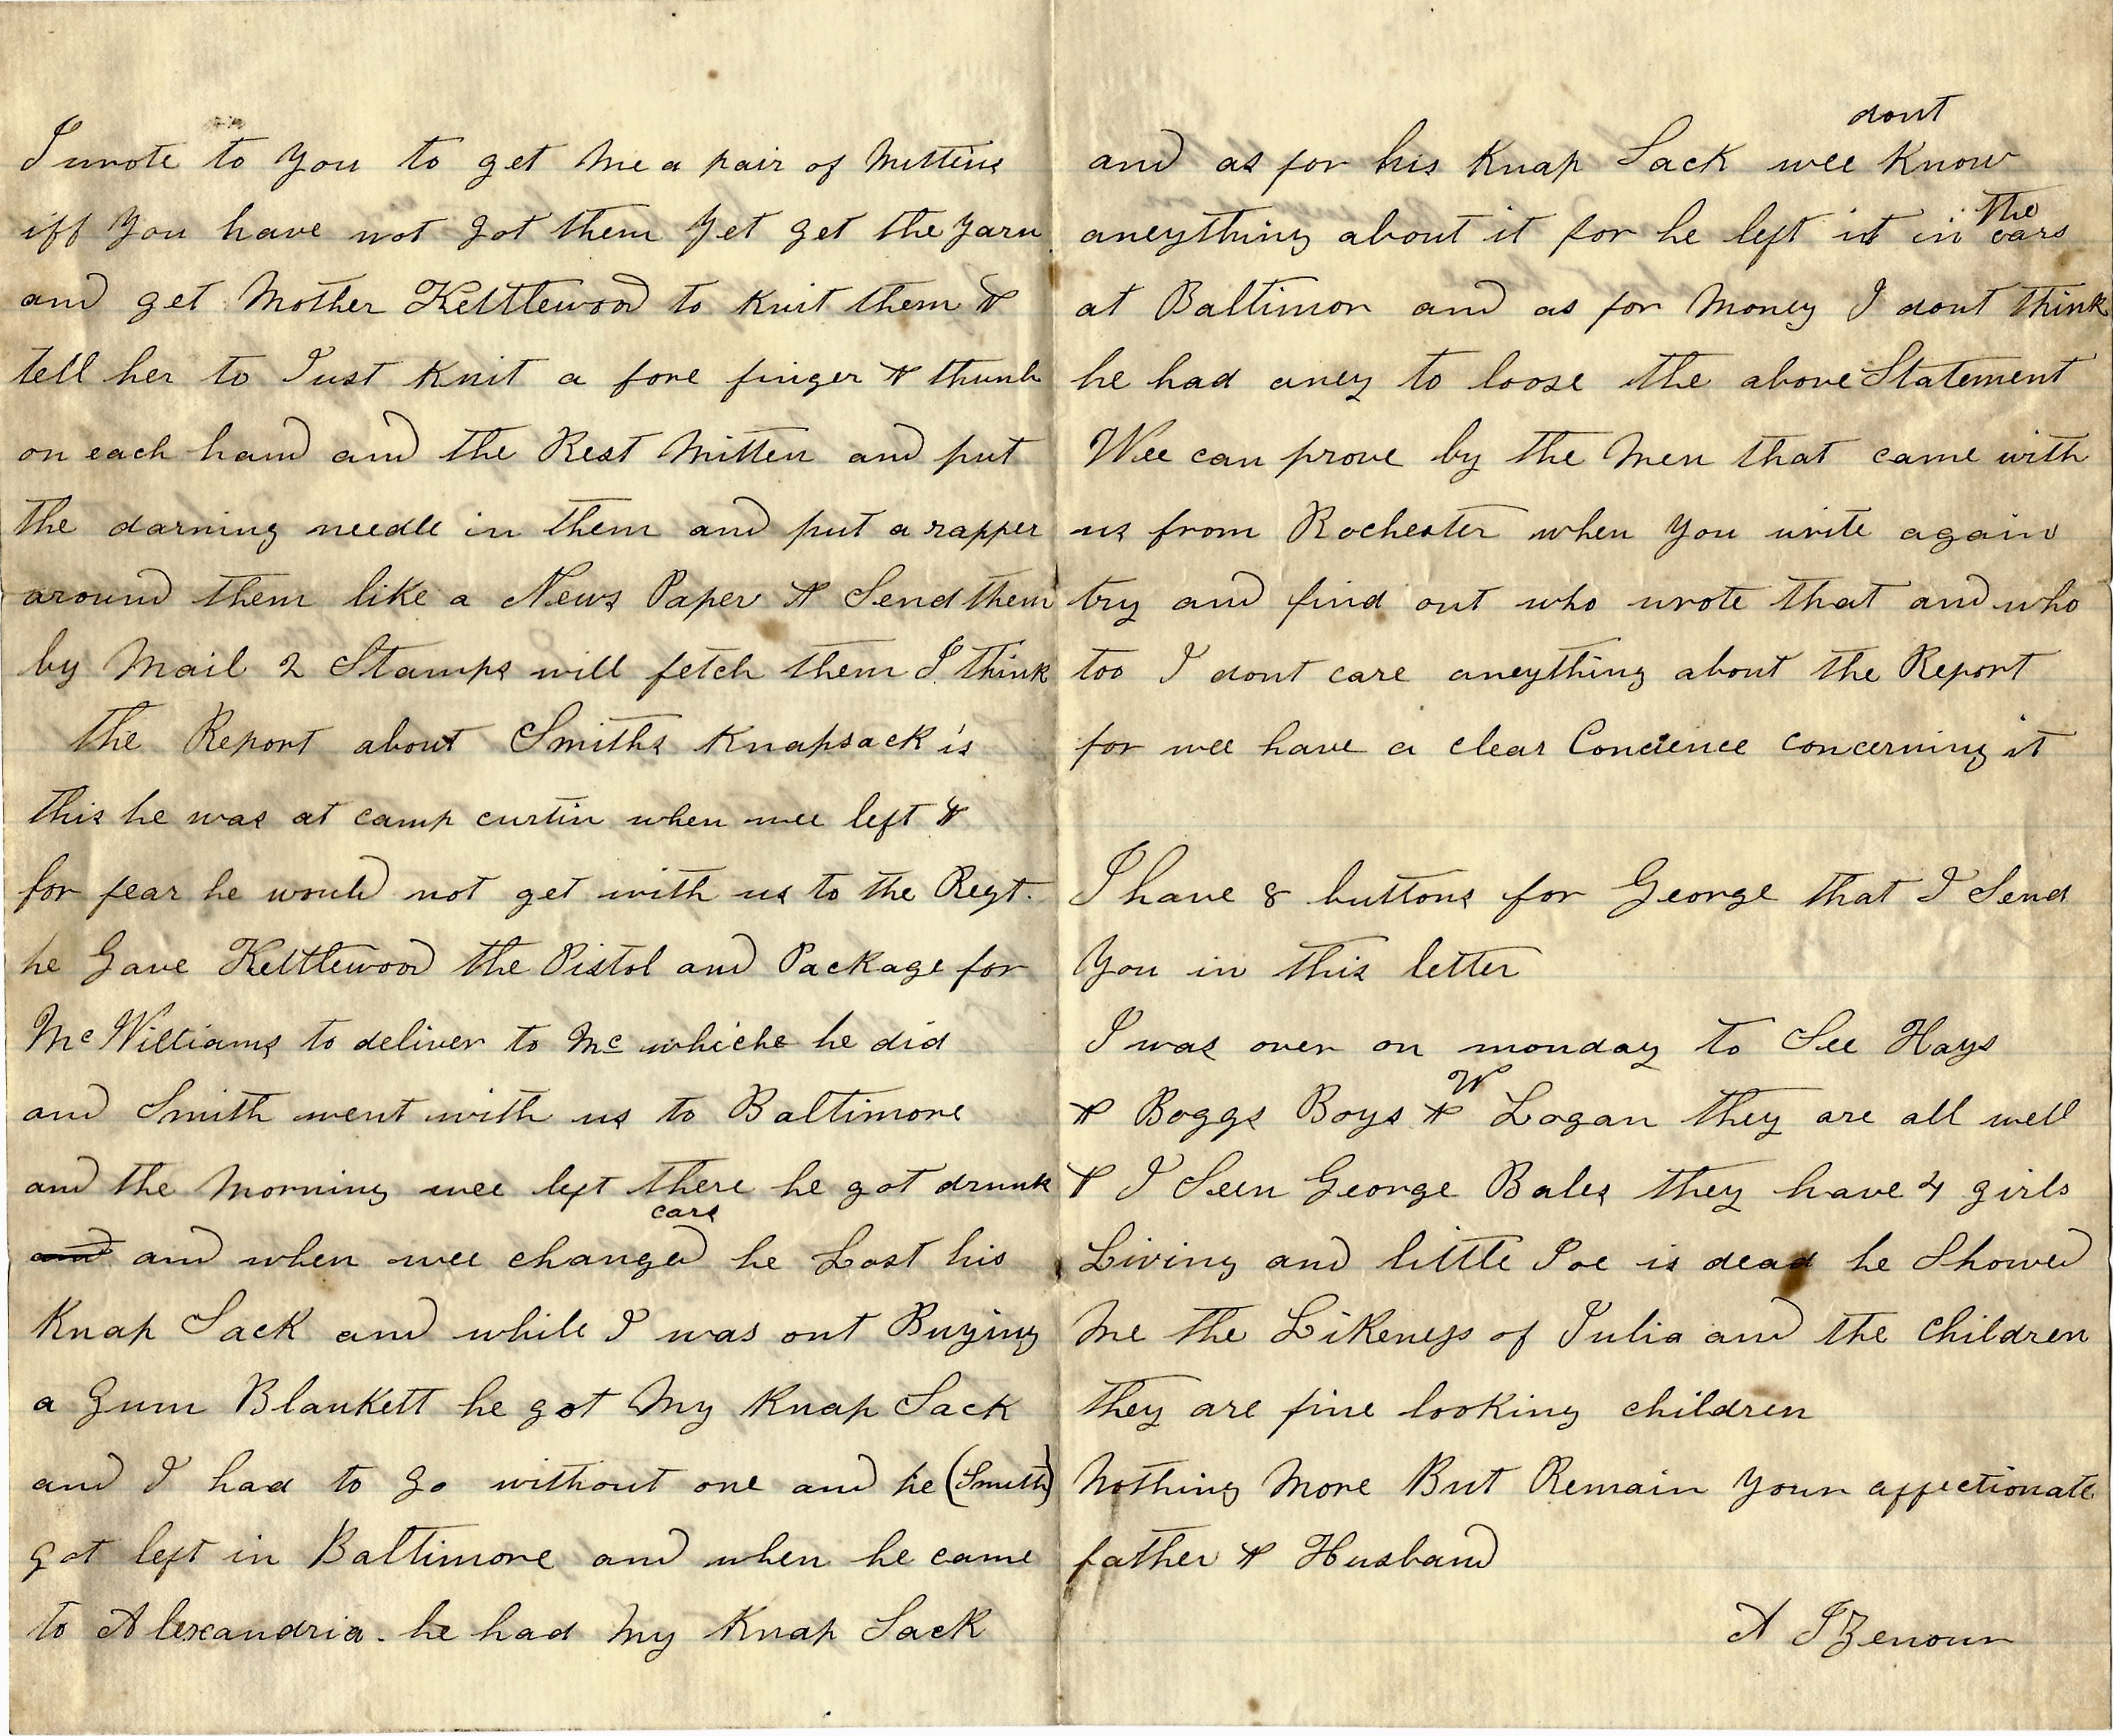 I wrote to you to get me a pair of mittins
iff you have not got them yet get the yarn
and get Mother Kettlewood to knit them &
tell her to Just knit a fore finger & thumb
on each hand and the Rest Mitten and put
the darning needle in them and put a rapper
around them like a News Paper & Send them
by Mail 2 Stamps will fetch them I think
the Report about Smiths Knapsack is
this he was at camp curtin when wee left &
for fear he would not get with us to the Regt.
he Gave Kettlewood the Pistol and Package for
McWilliams to deliver to Mc whiche he did
and Smith went with us to Baltimore
and the Morning wee left there he got drunk
cars
and and when wee changed he Lost his
Knap Sack and while I was out Buying
a Gum Blankett he got My Knap Sack
and I had to go without one and he (Smith)
got left in Baltimore and when he came
to Alexandria. he had My Knap Sack
dont
and as for his Knap Sack wee know
the
aneything about it for he left it in cars
at Baltimor and as for Money I dont think
he had aney to loose the above Statement
Wee can prove by the Men that came with
us from Rochester when you write again
try and find out who wrote that and who
too I dont care aneything about the Report
for wee have a clear Concience concerning it
I have 8 buttons for George that I Send
You in this letter
I was over on monday to See Hays
W
& Boggs Boys & Logan they are all well
& I Seen George Bales they have 4 girls
Living and little Joe is dead he Showed
Me the Likeness of Julia and the children
they are fine looking children
Nothing More But Remain Your affectionate
father & Husband
A IZenour